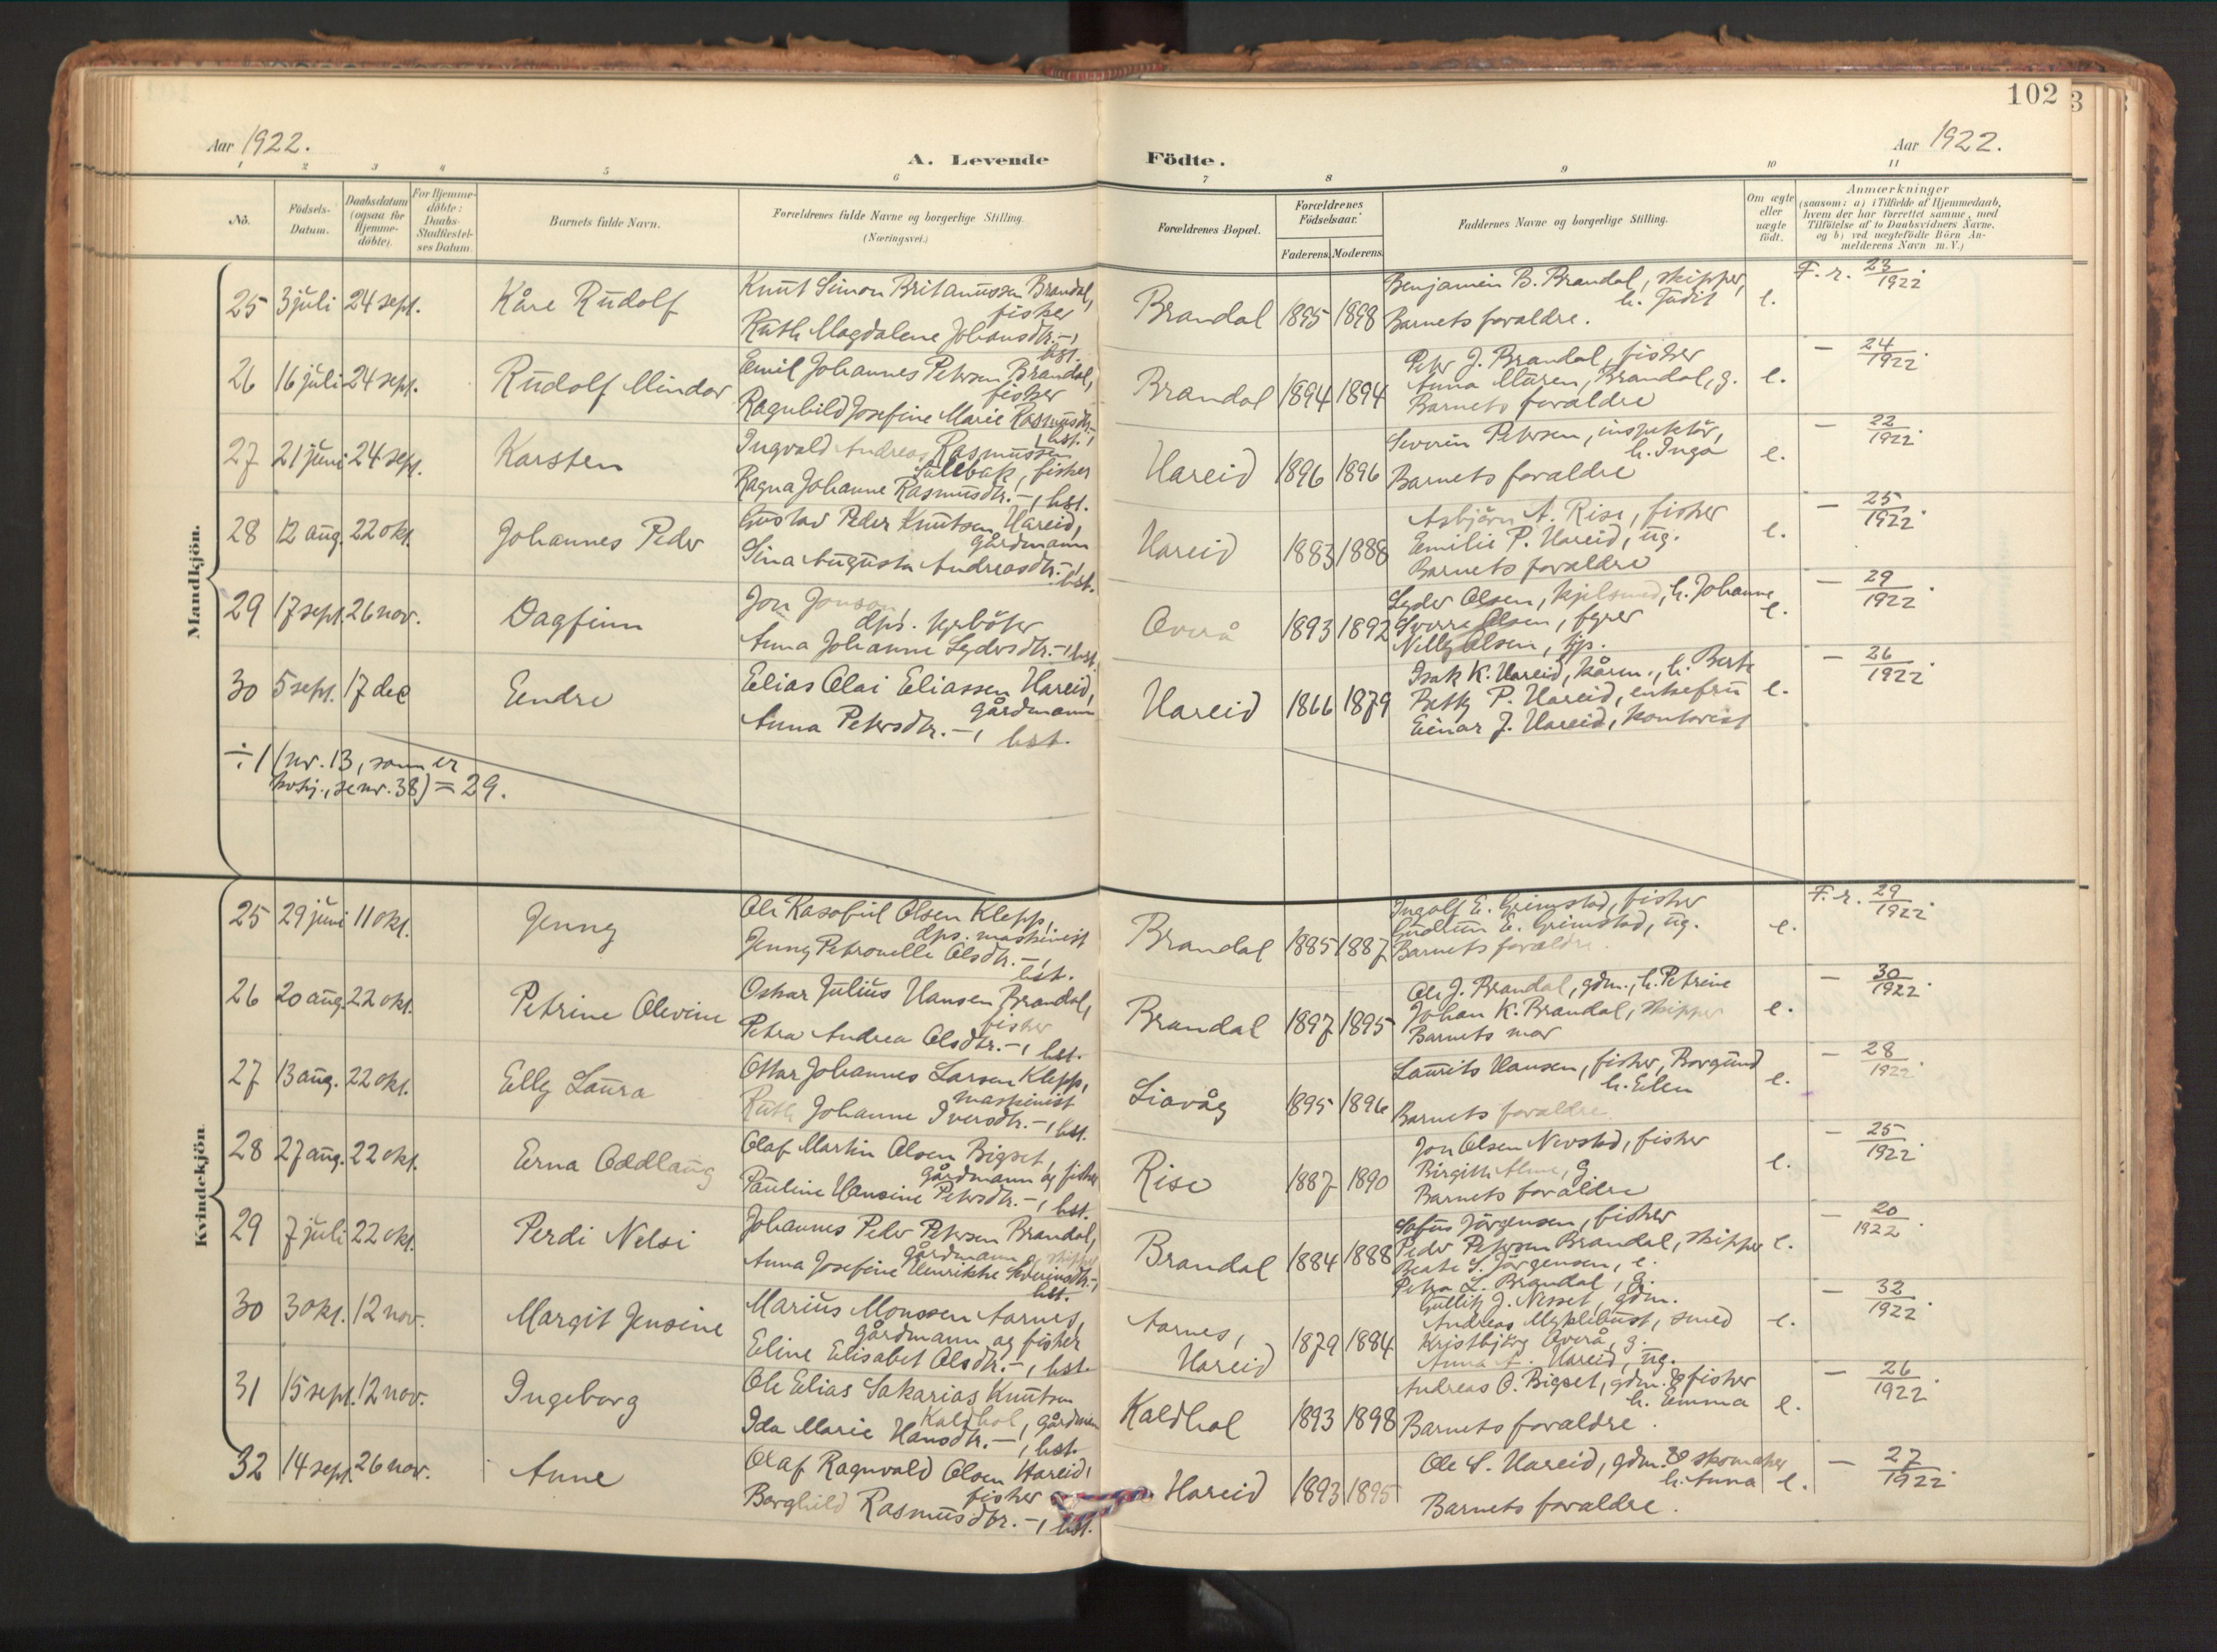 102
Aar 1922.
A. Levende Födte.
Aar 1922.
1 2 3 4 5 6 7 8 9 10 11
No.
Födsels-Datum.
Daabsdatum (ogsaa for Hjemme-döbte).
For Hjemme-döbte: Daabs-Stadfæstel-ses Datum.
Barnets fulde Navn.
Forældrenes fulde Navne og borgerlige Stilling. (Næringsvei.)
Forældrenes Bopæl.
Forældrenes Födselsaar.
Faderens. Moderens.
Faddernes Navne og borgerlige Stilling.
Om ægte eller uægte födt.
Anmærkninger
(saasom: a) i Tilfælde af Hjemmedaab, hvem der har forrettet samme, med Tilföielse af to Daabsvidners Navne, og b) ved uægtefödte Börn Anmelderens Navn m. V.)
Mandkjön.
25 3 juli 24 sept. Kåre Rudolf
Knut Simon Britanussen Brandal, fisker
Ruth Magdalene Johansdtr. –, hst.
Brandal 1895 1898
Benjamin B. Brandal, skipper, h. Judit
Barnets foraldre.
e. F. r. 23/1922.
26 16 juli 24 sept. Rudolf Mindor
Emil Johannes Petersen Brandal, fisker
Ragnhild Josefine Marie Rasmusdtr. –, hst.
Brandal 1894 1894
Peter J. Brandal, fisker
Anna Maren, Brandal, g.
Barnets foraldre
e. – 24/1922.
27 21 juni 24 sept. Karsten
Ingvald Andreas Rasmussen fisker
Ragna Johanne Rasmusdtr. –, hst.
Hareid 1896 1896
Severin Petersen, inspektör, h. Inga
Barnets foraldre
e. – 22/1922.
28 12 aug. 22 okt. Johannes Peder
Gustav Peder Knutsen Hareid, gårdmann
Sina Augusta Andreasdtr. –, hst.
Hareid 1883 1888
Asbjörn A. Rise, fisker
Emilie P. Hareid, ug.
Barnets foraldre
e. – 25/1922.
29 17 sept. 26 nov. Dagfinn
Jon Jonson, dps.
Anna Johanne Sydersdtr. –, hst.
Overå 1893 1892
Syder Olsen, h. Johanne
Sverre Olsen, fyrer
Nelly Olsen,
e. – 29/1922.
30 5 sept. 17 dec Eendre
Elias Olai Eliassen Hareid, gårdmann
Anna Petersdtr. –, hst.
Hareid 1866 1879
Isak K. Hareid, kårm., h. Berte
Betty P. Hareid, enkefru
Einar J. Hareid, kontorist
e. – 26/1922.
÷ 1 (nr. 13, som er
se nr. 38) = 29.
Kvindekjön.
25 29 juni 11 okt. Jenny
Ole Olsen Klepp, dps. maskinist
Jenny Petronelle Olsdtr. –, hst.
Brandal 1885 1887
Ingolf E. Grimstad, fisker
Gudrun E. Grimstad, ug.
Barnets foraldre.
e. F. r. 29/1922.
26 20 aug. 22 okt. Petrine Olevine
Oskar Julius Hansen Brandal, fisker
Petra Andrea Olsdtr. –, hst.
Brandal 1897 1895
Ole J. Brandal, gdm., h. Petrine
Johan K. Brandal, skipper
Barnets mor
e. – 30/1922.
27 13 aug. 22 okt. Elly Laura
Ottar Johannes Larsen Klepp, maskinist
Ruth Johanne Iversdtr. –, hst.
Liavåg 1895 1896
Laurits Hansen, fisker, Borgund h. Elen
Barnets foraldre.
e. – 28/1922.
28 27 aug. 22 okt. Erna Oddlaug
Olaf Martin Olsen Bigset, gårdmann og fisker
Pauline Hansine Petersdtr. –, hst.
Rise 1887 1890
Jon Olsen Nevstad, fisker
Birgitte Alme, g.
Barnets foraldre
e. – 25/1922.
29 7 juli 22 okt. Perdi Nelsi
Johannes Peder Petersen Brandal, gårdmann og skipper
Anna Josefine Henrikke Severinsdtr. –, hst.
Brandal 1884 1888
Sofus Jörgensen, fisker
Peder Petersen Brandal, skipper
Beate S. Jörgensen, e.
Petra L. Brandal, g.
e. – 20/1922.
30 3 okt. 12 nov. Margit Jensine
Marius Monssen Aarnes, gårdmann og fisker
Eline Elisabet Olsdtr. –, hst.
Aarnes, Hareid 1879 1884
Gullik J. Nesset, gdm.
Andreas Myklebust, smed
Kristbjörg Overå, g.
Anna A. Hareid, ug.
e. – 32/1922.
31 15 sept. 12 nov. Ingeborg
Ole Elias Sakarias Knutsen Kaldhol, gårdmann
Ida Marie Hansdtr. –, hst.
Kaldhol 1893 1898
Andreas O. Bigset, gdm. & fisker h. Emma
Barnets foraldre.
e. – 26/1922.
32 14 sept. 26 nov. Anne
Olaf Ragnvald Olsen Hareid, fisker
Borghild Rasmusdtr. –, hst.
Hareid 1893 1895
Ole S. Hareid, gdm. & skomaker h. Anna
Barnets foraldre.
e. – 27/1922.